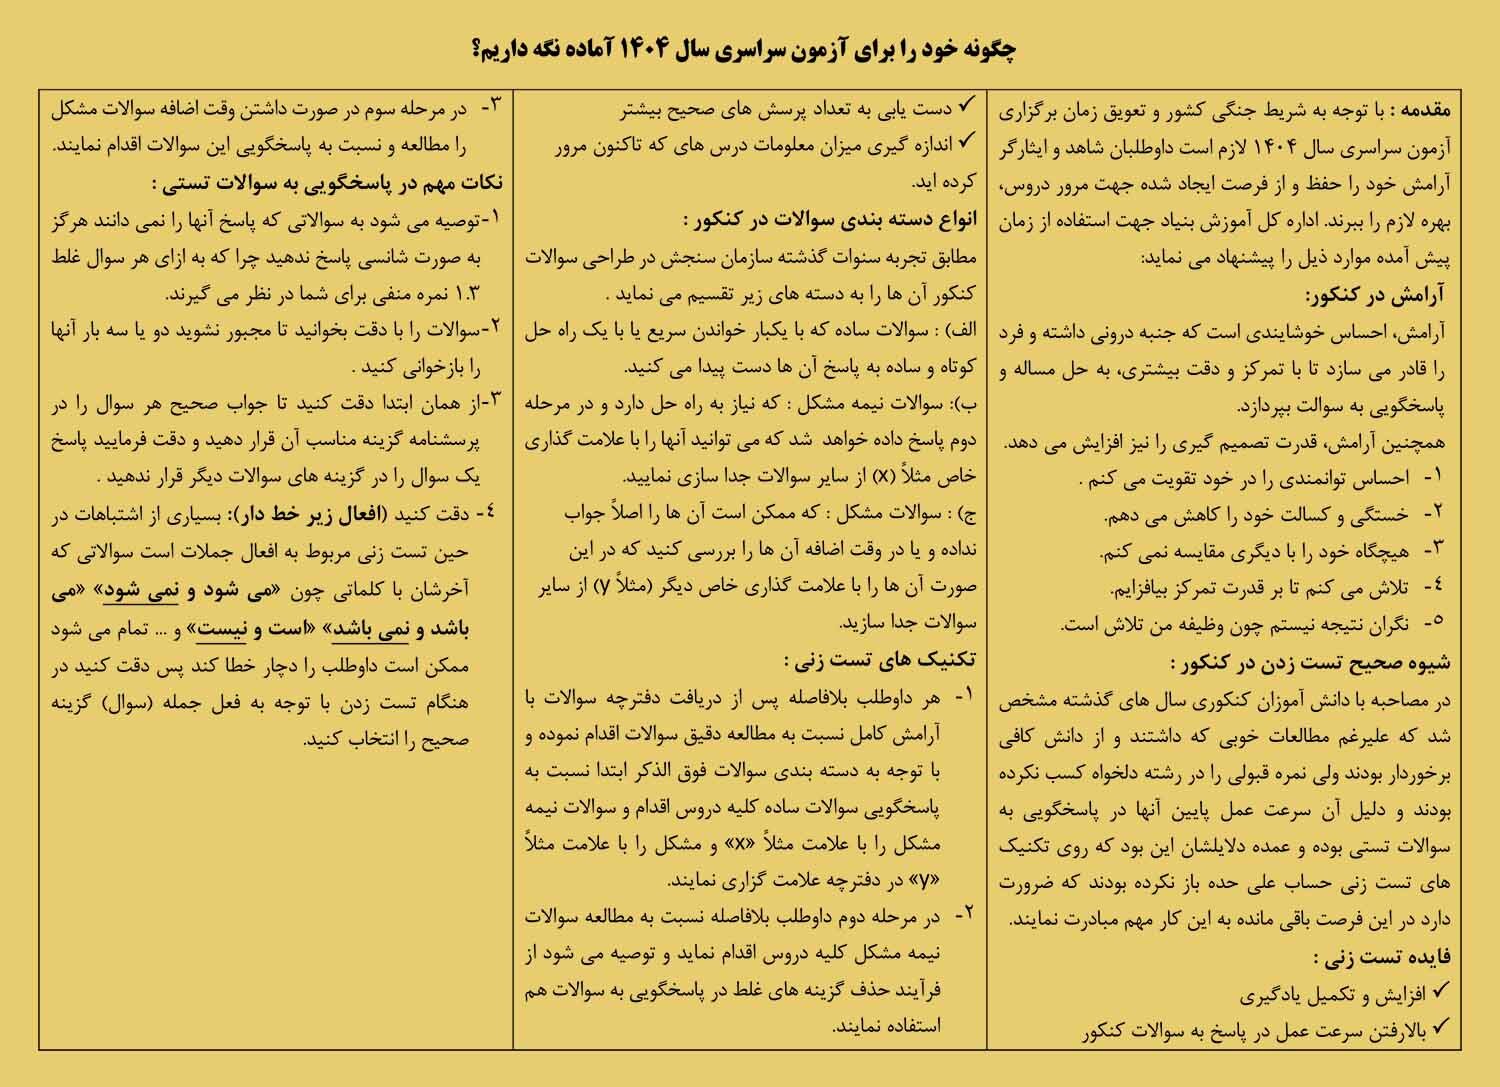 چگونه خود را برای آزمون سراسری سال ۱۴۰۴ آماده نگه داریم؟
مقدمه : با توجه به شریط جنگی کشور و تعویق زمان برگزاری
آزمون سراسری سال ۱۴۰۴ لازم است داوطلبان شاهد و ایثارگر
آرامش خود را حفظ و از فرصت ایجاد شده جهت مرور دروس،
بهره لازم را ببرند. اداره کل آموزش بنیاد جهت استفاده از زمان
پیش آمده موارد ذیل را پیشنهاد می نماید:
آرامش در کنکور:
آرامش، احساس خوشایندی است که جنبه درونی داشته و فرد
را قادر می سازد تا با تمرکز و دقت بیشتری، به حل مساله و
پاسخگویی به سوالت بپردازد.
همچنین آرامش، قدرت تصمیم گیری را نیز افزایش می دهد.
۱- احساس توانمندی را در خود تقویت می کنم .
۲- خستگی و کسالت خود را کاهش می دهم.
۳- هیچگاه خود را با دیگری مقایسه نمی کنم.
٤- تلاش می کنم تا بر قدرت تمرکز بیافزایم.
٥- نگران نتیجه نیستم چون وظیفه من تلاش است.
شیوه صحیح تست زدن در کنکور :
در مصاحبه با دانش آموزان کنکوری سال های گذشته مشخص
شد که علیرغم مطالعات خوبی که داشتند و از دانش کافی
برخوردار بودند ولی نمره قبولی را در رشته دلخواه کسب نکرده
بودند و دلیل آن سرعت عمل پایین آنها در پاسخگویی به
سوالات تستی بوده و عمده دلایلشان این بود که روی تکنیک
های تست زنی حساب علی حده باز نکرده بودند که ضرورت
دارد در این فرصت باقی مانده به این کار مهم مبادرت نمایند.
فایده تست زنی :
✓ افزایش و تکمیل یادگیری
✓ بالارفتن سرعت عمل در پاسخ به سوالات کنکور
✓ دست یابی به تعداد پرسش های صحیح بیشتر
✓ اندازه گیری میزان معلومات درس های که تاکنون مرور
کرده اید.
انواع دسته بندی سوالات در کنکور :
مطابق تجربه سنوات گذشته سازمان سنجش در طراحی سوالات
کنکور آن ها را به دسته های زیر تقسیم می نماید .
الف) : سوالات ساده که با یکبار خواندن سریع یا با یک راه حل
کوتاه و ساده به پاسخ آن ها دست پیدا می کنید.
ب): سوالات نیمه مشکل : که نیاز به راه حل دارد و در مرحله
دوم پاسخ داده خواهد شد که می توانید آنها را با علامت گذاری
خاص مثلاً (x) از سایر سوالات جدا سازی نمایید.
ج) : سوالات مشکل : که ممکن است آن ها را اصلاً جواب
نداده و یا در وقت اضافه آن ها را بررسی کنید که در این
صورت آن ها را با علامت گذاری خاص دیگر (مثلاً y) از سایر
سوالات جدا سازید.
تکنیک های تست زنی :
۱- هر داوطلب بلافاصله پس از دریافت دفترچه سوالات با
آرامش کامل نسبت به مطالعه دقیق سوالات اقدام نموده و
با توجه به دسته بندی سوالات فوق الذکر ابتدا نسبت به
پاسخگویی سوالات ساده کلیه دروس اقدام و سوالات نیمه
مشکل را با علامت مثلاً «x» و مشکل را با علامت مثلاً
«y» در دفترچه علامت گزاری نمایند.
۲- در مرحله دوم داوطلب بلافاصله نسبت به مطالعه سوالات
نیمه مشکل کلیه دروس اقدام نماید و توصیه می شود از
فرآیند حذف گزینه های غلط در پاسخگویی به سوالات هم
استفاده نمایند.
۳- در مرحله سوم در صورت داشتن وقت اضافه سوالات مشکل
را مطالعه و نسبت به پاسخگویی این سوالات اقدام نمایند.
نکات مهم در پاسخگویی به سوالات تستی :
۱-توصیه می شود به سوالاتی که پاسخ آنها را نمی دانند هرگز
به صورت شانسی پاسخ ندهید چرا که به ازای هر سوال غلط
۱.۳ نمره منفی برای شما در نظر می گیرند.
۲-سوالات را با دقت بخوانید تا مجبور نشوید دو یا سه بار آنها
را بازخوانی کنید .
۳-از همان ابتدا دقت کنید تا جواب صحیح هر سوال را در
پرسشنامه گزینه مناسب آن قرار دهید و دقت فرمایید پاسخ
یک سوال را در گزینه های سوالات دیگر قرار ندهید .
٤- دقت کنید (افعال زیر خط دار): بسیاری از اشتباهات در
حین تست زنی مربوط به افعال جملات است سوالاتی که
آخرشان با کلماتی چون «می شود و نمی شود» «می
باشد و نمی باشد» «است و نیست» و ... تمام می شود
ممکن است داوطلب را دچار خطا کند پس دقت کنید در
هنگام تست زدن با توجه به فعل جمله (سوال) گزینه
صحیح را انتخاب کنید.